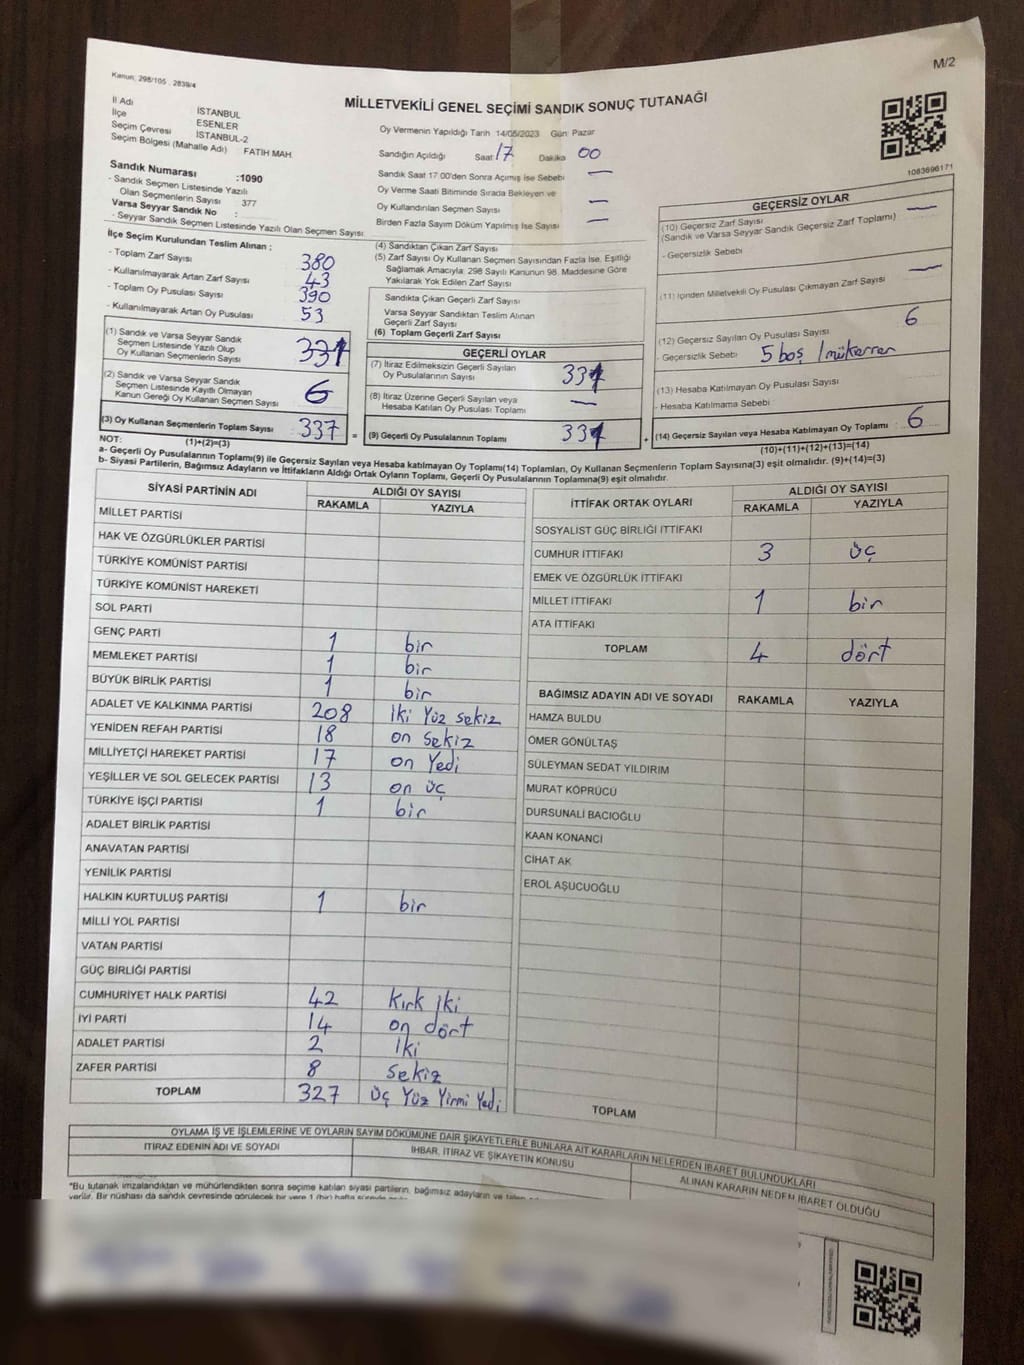 M/2
Kanun: 298/105 , 2839/4
MİLLETVEKİLİ GENEL SEÇİMİ SANDIK SONUÇ TUTANAĞI
İl Adı İSTANBUL
İlçe ESENLER
Seçim Çevresi İSTANBUL-2
Seçim Bölgesi (Mahalle Adı) FATİH MAH.
Sandık Numarası :1090
- Sandık Seçmen Listesinde Yazılı
Olan Seçmenlerin Sayısı 377
Varsa Seyyar Sandık No :
- Seyyar Sandık Seçmen Listesinde Yazılı Olan Seçmen Sayısı:
Oy Vermenin Yapıldığı Tarih 14/05/2023 Gün: Pazar
Sandığın Açıldığı Saat 17 Dakika 00
Sandık Saat 17:00'den Sonra Açılmış İse Sebebi —
Oy Verme Saati Bitiminde Sırada Bekleyen ve
Oy Kullandırılan Seçmen Sayısı —
Birden Fazla Sayım Döküm Yapılmış İse Sayısı —
1083696171
İlçe Seçim Kurulundan Teslim Alınan :
- Toplam Zarf Sayısı 380
- Kullanılmayarak Artan Zarf Sayısı 43
- Toplam Oy Pusulası Sayısı 390
- Kullanılmayarak Artan Oy Pusulası 53
(1) Sandık ve Varsa Seyyar Sandık
Seçmen Listesinde Yazılı Olup
Oy Kullanan Seçmenlerin Sayısı 331
(2) Sandık ve Varsa Seyyar Sandık
Seçmen Listesinde Kayıtlı Olmayan
Kanun Gereği Oy Kullanan Seçmen Sayısı 6
(3) Oy Kullanan Seçmenlerin Toplam Sayısı 337
(4) Sandıktan Çıkan Zarf Sayısı
(5) Zarf Sayısı Oy Kullanan Seçmen Sayısından Fazla İse, Eşitliği
Sağlamak Amacıyla; 298 Sayılı Kanunun 98. Maddesine Göre
Yakılarak Yok Edilen Zarf Sayısı
Sandıkta Çıkan Geçerli Zarf Sayısı
Varsa Seyyar Sandıktan Teslim Alınan
Geçerli Zarf Sayısı
(6) Toplam Geçerli Zarf Sayısı
GEÇERLİ OYLAR
(7) İtiraz Edilmeksizin Geçerli Sayılan
Oy Pusulalarının Sayısı 331
(8) İtiraz Üzerine Geçerli Sayılan veya
Hesaba Katılan Oy Pusulası Toplamı —
= (9) Geçerli Oy Pusulalarının Toplamı 331
GEÇERSİZ OYLAR
(10) Geçersiz Zarf Sayısı —
(Sandık ve Varsa Seyyar Sandık Geçersiz Zarf Toplamı)
- Geçersizlik Sebebi
(11) İçinden Milletvekili Oy Pusulası Çıkmayan Zarf Sayısı —
(12) Geçersiz Sayılan Oy Pusulası Sayısı 6
- Geçersizlik Sebebi 5 boş 1 mükerrer
(13) Hesaba Katılmayan Oy Pusulası Sayısı
- Hesaba Katılmama Sebebi
+ (14) Geçersiz Sayılan veya Hesaba Katılmayan Oy Toplamı : 6
NOT: (1)+(2)=(3)
(10)+(11)+(12)+(13)=(14)
a- Geçerli Oy Pusulalarının Toplamı(9) ile Geçersiz Sayılan veya Hesaba katılmayan Oy Toplamı(14) Toplamları, Oy Kullanan Seçmenlerin Toplam Sayısına(3) eşit olmalıdır. (9)+(14)=(3)
b- Siyasi Partilerin, Bağımsız Adayların ve İttifakların Aldığı Ortak Oyların Toplamı, Geçerli Oy Pusulalarının Toplamına(9) eşit olmalıdır.
SİYASİ PARTİNİN ADI ALDIĞI OY SAYISI
RAKAMLA YAZIYLA
MİLLET PARTİSİ
HAK VE ÖZGÜRLÜKLER PARTİSİ
TÜRKİYE KOMÜNİST PARTİSİ
TÜRKİYE KOMÜNİST HAREKETİ
SOL PARTİ
GENÇ PARTİ 1 bir
MEMLEKET PARTİSİ 1 bir
BÜYÜK BİRLİK PARTİSİ 1 bir
ADALET VE KALKINMA PARTİSİ 208 İki Yüz sekiz
YENİDEN REFAH PARTİSİ 18 on sekiz
MİLLİYETÇİ HAREKET PARTİSİ 17 on Yedi
YEŞİLLER VE SOL GELECEK PARTİSİ 13 on üç
TÜRKİYE İŞÇİ PARTİSİ 1 bir
ADALET BİRLİK PARTİSİ
ANAVATAN PARTİSİ
YENİLİK PARTİSİ
HALKIN KURTULUŞ PARTİSİ 1 bir
MİLLİ YOL PARTİSİ
VATAN PARTİSİ
GÜÇ BİRLİĞİ PARTİSİ
CUMHURİYET HALK PARTİSİ 42 Kırk iki
İYİ PARTİ 14 on dört
ADALET PARTİSİ 2 İki
ZAFER PARTİSİ 8 sekiz
TOPLAM 327 üç Yüz Yirmi Yedi
İTTİFAK ORTAK OYLARI ALDIĞI OY SAYISI
RAKAMLA YAZIYLA
SOSYALİST GÜÇ BİRLİĞİ İTTİFAKI
CUMHUR İTTİFAKI 3 üç
EMEK VE ÖZGÜRLÜK İTTİFAKI
MİLLET İTTİFAKI 1 bir
ATA İTTİFAKI
TOPLAM 4 dört
BAĞIMSIZ ADAYIN ADI VE SOYADI RAKAMLA YAZIYLA
HAMZA BULDU
ÖMER GÖNÜLTAŞ
SÜLEYMAN SEDAT YILDIRIM
MURAT KÖPRÜCÜ
DURSUNALİ BACIOĞLU
KAAN KONANCİ
CİHAT AK
EROL AŞUCUOĞLU
TOPLAM
OYLAMA İŞ VE İŞLEMLERİNE VE OYLARIN SAYIM DÖKÜMÜNE DAİR ŞİKAYETLERLE BUNLARA AİT KARARLARIN NELERDEN İBARET BULUNDUKLARI
İTİRAZ EDENİN ADI VE SOYADI İHBAR, İTİRAZ VE ŞİKAYETİN KONUSU ALINAN KARARIN NEDEN İBARET OLDUĞU
*Bu tutanak imzalandıktan ve mühürlendikten sonra seçime katılan siyasi partilerin, bağımsız adayların ve talep
verilir. Bir nüshası da sandık çevresinde görülecek bir yere 1 (bir) hafta süreyle